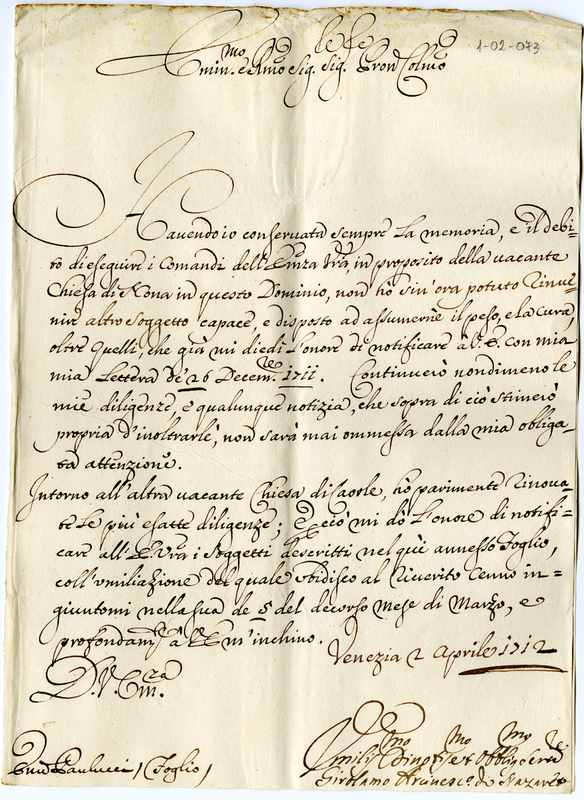 1-02-073
Em.mo e R.mo Sig. Sig. Pron Col.mo
Havendo io conservata sempre la memoria, e il debi-
to di eseguire i Comandi dell'Em.za V.ra in proposito della vacante
Chiesa di Nona in questo Dominio, non hò sin'ora potuto Rinue-
nire altro soggetto capace, e disposto ad assumerne il peso, e la cura,
oltre quelli, che già mi diedi l'onore di notificare à V.E. con mia
mia Lettera de 26 Decem.re 1711. Continuerò nondimeno le
mie diligenze, e qualunque notizia, che sopra di ciò stimerò
propria d'inoltrarle, non sarà mai ommessa dalla mia obliga-
ta attenzione.
Intorno all'altra vacante Chiesa di Caorle, hò parimente Rinoua-
te le più esatte diligenze; e perciò mi dò l'onore di notifi-
care all'E.V.ra i soggetti descritti nel quì annesso foglio,
coll'umiliazione del quale obidisco al Riverito Cenno in-
giuntomi nella sua de 5 del decorso Mese di Marzo, e
profondam.te à V.E. m'inchino.
Venezia 2 Aprile 1712
D. V. Em.za
Em. Paulucci / Foglio /
Umiliss.mo Divotiss.mo et Obblig.mo Ser.e
Girolamo Arcivesc.o di Nazaret